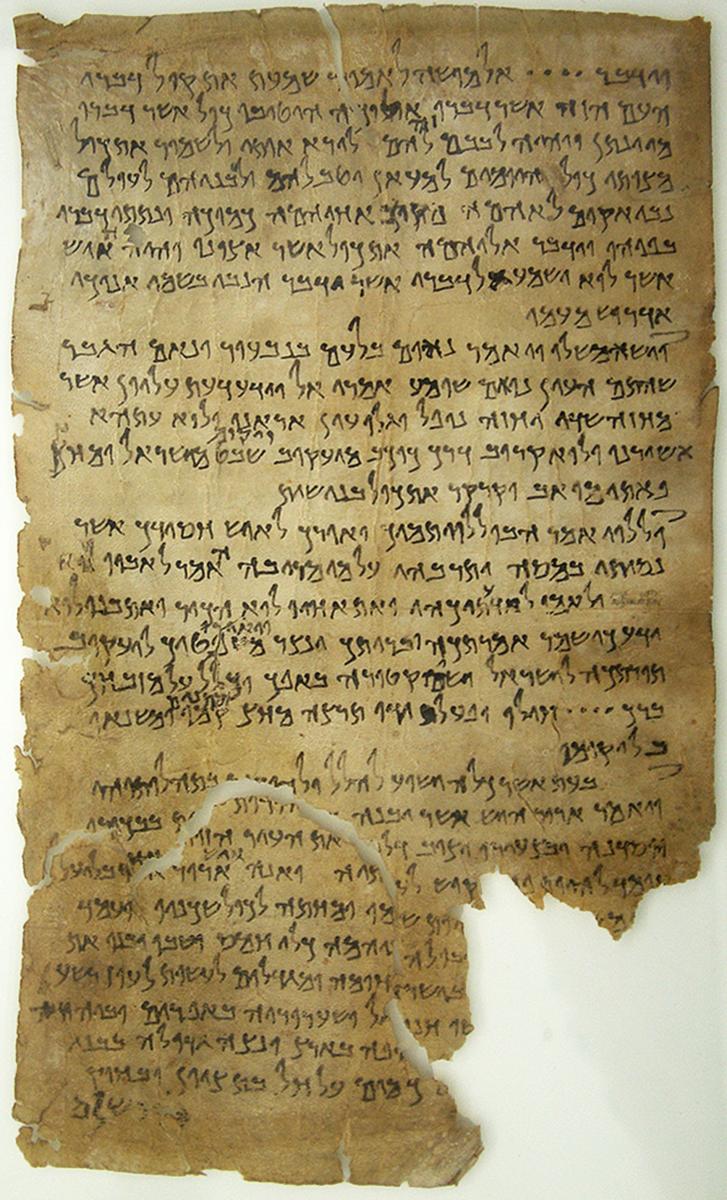 וידבר •••• אל מושה לאמור שמעת את קול דברי
העם הזה אשר דברו אליכה היטיבו כול אשר דברו
מי ינתן ויהיה לבבם זה להם לירא אותי ולשמור את כול
מצותי כול היומים למעאן יטב להם ולבניהם לעולם
נבי אקים לאהמה מקרב אחיהמה כמוכה ונתתי דברי
בפיהו וידבר אליהמה את כול אשר אצונו והיה האיש
אשר לוא ישמע אל דברי אשר ידבר הנבי בשמי אנוכי
אדרוש מעמו
וישא משלו ויאמר נאום בלעם בנבעור ונאם הגבר
שהתם העין נואם שומע אמרי אל וידע דעת עליון אשר
מחזה שדי יחזה נופל וגלו עין אראנו ולוא עתהא
אשורנו ולוא קרוב דרך כוכב מיעקוב ויקום שבט מישראל ומחץ
פאתי מואב וקרקר את כול בני שית
וללוי אמר הבו ללוי תמיך ואורך לאיש חסידך אשר
נסיתו במסה ותרבהו על מי מריבה האמר לאביו לוא
ולאמו לוא ידעתיכהו ואת אחיו לוא הכיר ואת בנו לוא
ידע כי שמר אמרתכה ובריתך ינצר ויאירו משפטיך ליעקוב
תורתכה לישראל ישים קטורה באפך וכליל על מזבחך
ברך •••• חילו ופעל ידו תרצה מחץ מתנים קמו ומשנאו
בל יקומו
בעת אשר כלה ישוע להלל ולהודות בתהלותיהו
ויאמר ארור היש אשר יבנה את העיר הזות בבכורו
ייסדנה ובצעירו יציב דלתיה ואנה ארור בליעל
עומד להיות יקוש לעמו ומחתה לכול שכניו ועמד
שניהמה כלי חמס ושבו ובנו את
ומגדלים לעשות לעוז רשע
ושערוריה באפרים וביהודה
בארץ ונצה גדולה בבני
כמים על חל בת ציון ובחוק